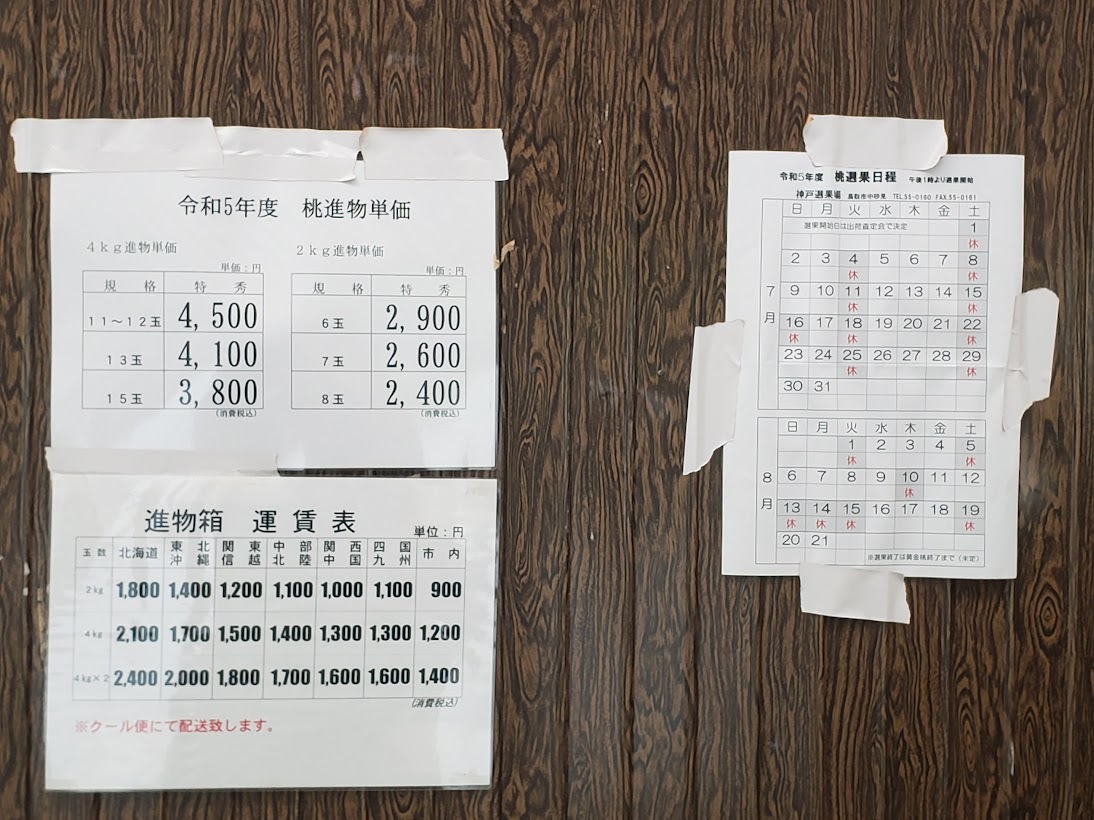 令和5年度 桃進物単価
4kg進物単価
単価：円
規 格 特 秀
11～12玉 4,500
13玉 4,100
15玉 3,800
(消費税込)
2kg進物単価
単価：円
規 格 特 秀
6玉 2,900
7玉 2,600
8玉 2,400
(消費税込)
進物箱 運賃表
単位：円
玉数 北海道 東北沖縄 関東信越 中部北陸 関西中国 四国九州 市内
2kg 1,800 1,400 1,200 1,100 1,000 1,100 900
4kg 2,100 1,700 1,500 1,400 1,300 1,300 1,200
4kg×2 2,400 2,000 1,800 1,700 1,600 1,600 1,400
(消費税込)
※クール便にて配送致します。
令和5年度 桃選果日程 午後1時より選果開始
神戸選果場 鳥取市中砂見 TEL.55-0160 FAX.55-0161
7月
日 月 火 水 木 金 土
選果開始日は出荷査定会で決定 1
休
2 3 4 5 6 7 8
休 休
9 10 11 12 13 14 15
休 休
16 17 18 19 20 21 22
休 休 休
23 24 25 26 27 28 29
休 休
30 31
8月
日 月 火 水 木 金 土
1 2 3 4 5
休 休
6 7 8 9 10 11 12
休
13 14 15 16 17 18 19
休 休 休 休
20 21
※選果終了は黄金桃終了まで（未定）